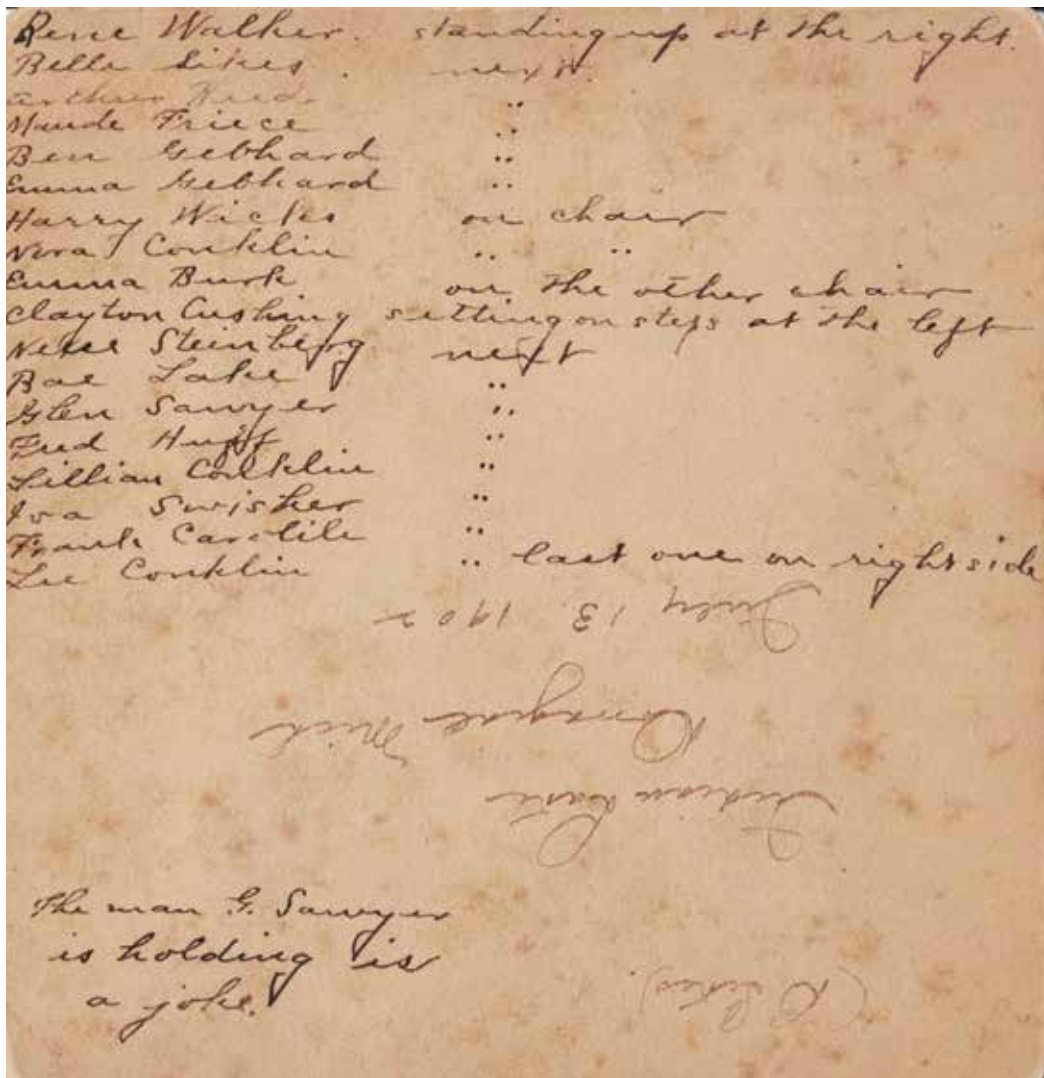 Rene Walker. standing up at the right.
Belle Sikes. next.
Arthur Hud. "
Maude Friece "
Ben Gebhard "
Emma Gebhard "
Harry Wicks on chair
Nora Conklin " "
Emma Burk on the other chair
Clayton Cushing setting on steps at the left
Steinberg next
Rae Lake "
Glen Sawyer "
Fred Huff "
Lillian Conklin "
Iva Swisher "
Frank Carolile "
Lee Conklin " last one on right side
July 13 1902
Mich
Indian
The man G. Sawyer
is holding is
a joke.
(R Sikes).